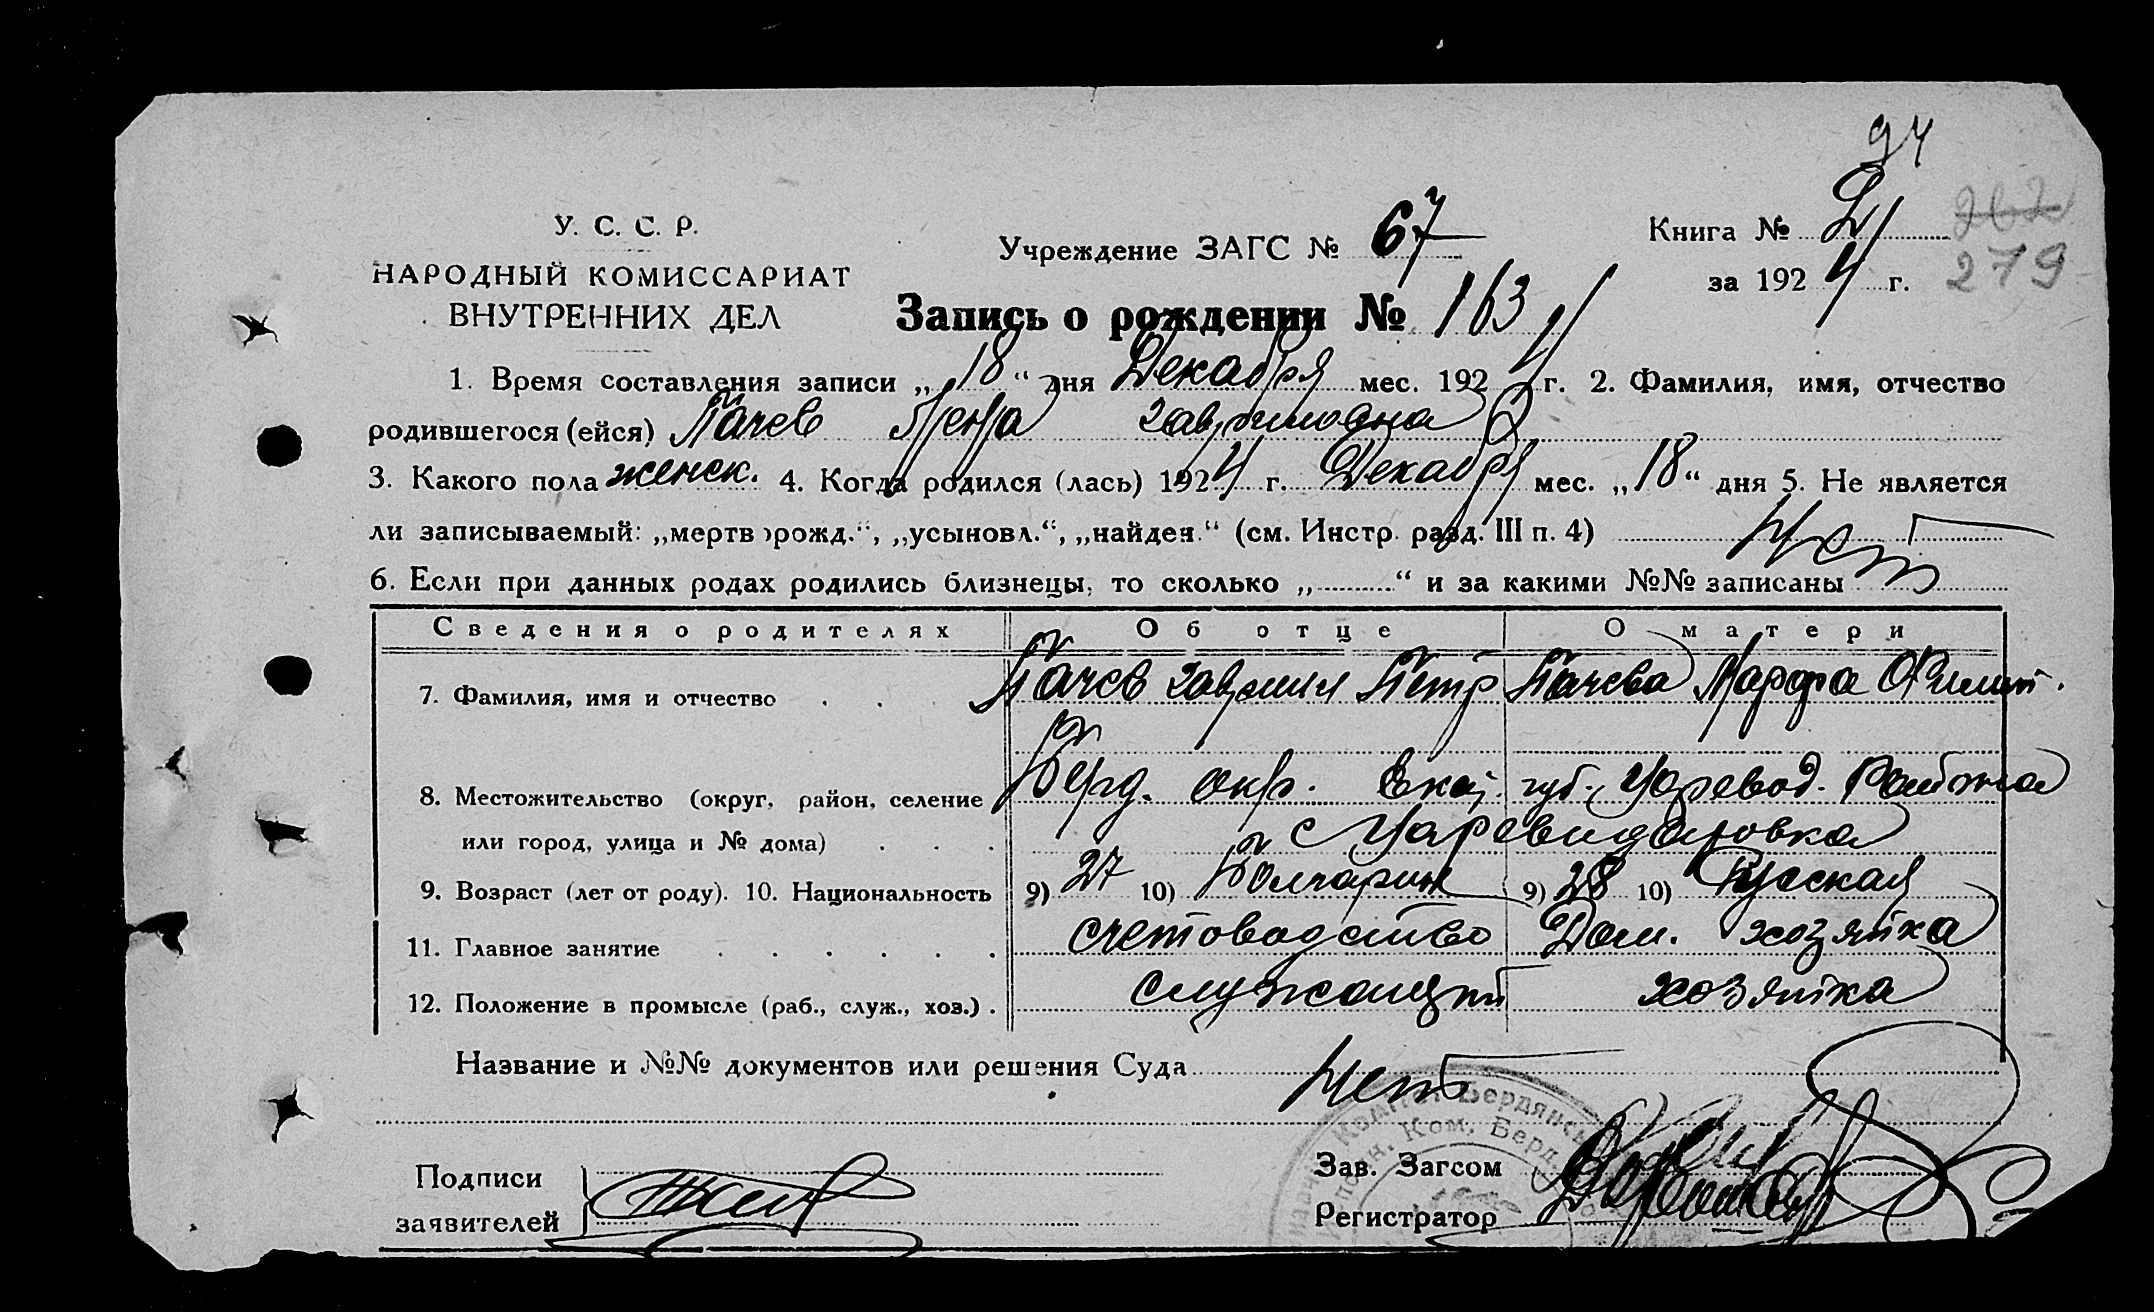 94
У. С. С. Р.
НАРОДНЫЙ КОМИССАРИАТ
ВНУТРЕННИХ ДЕЛ
Учреждение ЗАГС № 67
Книга №
262
за 1924 г.
279
Запись о рождении № 163
1. Время составления записи „18“ дня Декабря мес. 1924 г. 2. Фамилия, имя, отчество
родившегося (ейся) Пачев Гавриловна
3. Какого пола женск. 4. Когда родился (лась) 1924 г. Декабря мес. „18“ дня 5. Не является
ли записываемый: „мертворожд.“, „усыновл.“, „найден.“ (см. Инстр. разд. III п. 4) Нет
6. Если при данных родах родились близнецы, то сколько „..........“ и за какими №№ записаны
Сведения о родителях Об отце О матери
7. Фамилия, имя и отчество Пачев Гаврилл Петр Пачева Марфа Филип.
8. Местожительство (округ, район, селение Берд. окр. Екат. губ. Царевод. Района
или город, улица и № дома) с Цареводаровка
9. Возраст (лет от роду). 10. Национальность 9) 27 10) Болгарин 9) 28 10) Русская
11. Главное занятие счетоводство Дом. хозяйка
12. Положение в промысле (раб., служ., хоз.) служащий хозяйка
Название и №№ документов или решения Суда Нет
Подписи
заявителей
Зав. Загсом
Регистратор